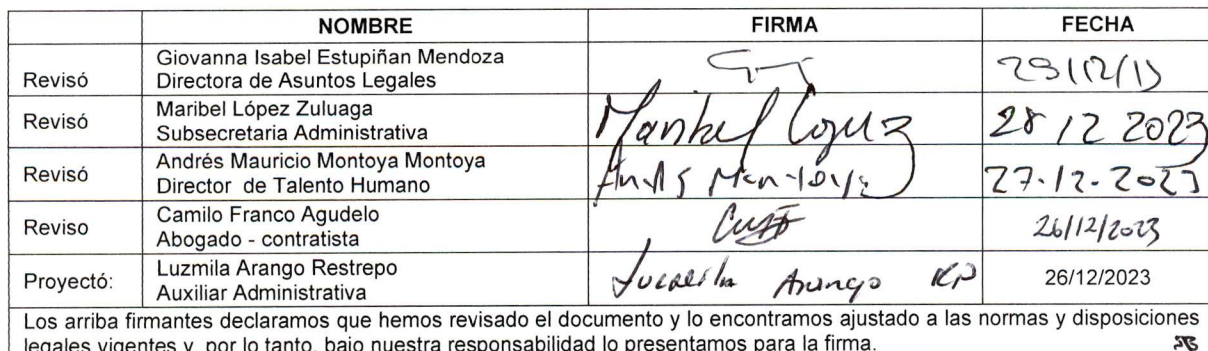 NOMBRE FIRMA FECHA
Giovanna Isabel Estupiñan Mendoza
Revisó Directora de Asuntos Legales
Maribel López Zuluaga
Revisó Subsecretaria Administrativa Maribel López 28 12 2023
Andrés Mauricio Montoya Montoya
Revisó Director de Talento Humano Andrés Montoya 27.12.2023
Camilo Franco Agudelo
Reviso Abogado - contratista 26/12/2023
Luzmila Arango Restrepo
Proyectó: Auxiliar Administrativa Arango 26/12/2023
Los arriba firmantes declaramos que hemos revisado el documento y lo encontramos ajustado a las normas y disposiciones
legales vigentes y, por lo tanto, bajo nuestra responsabilidad lo presentamos para la firma.